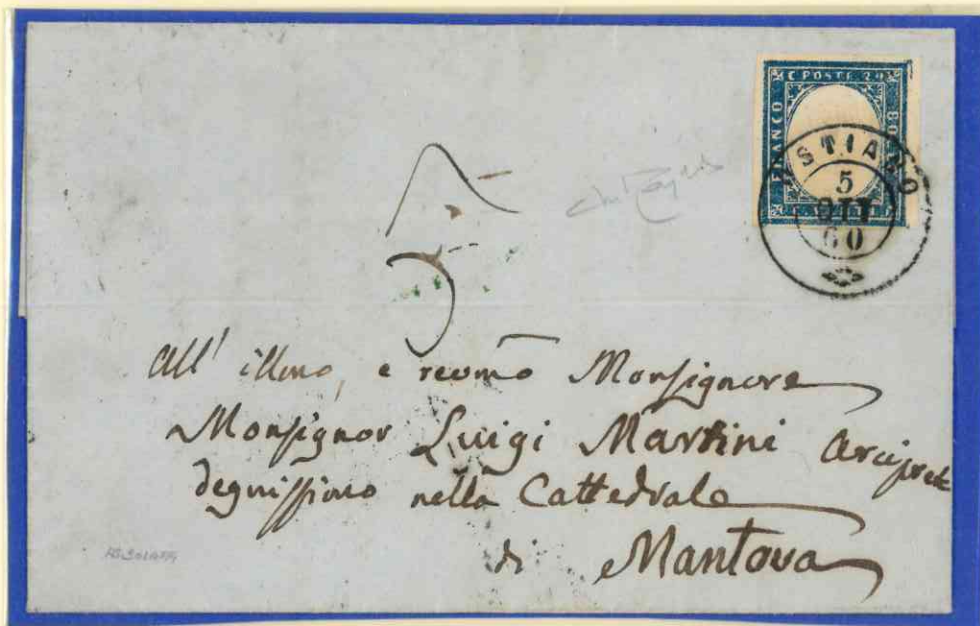 C. POSTE 20
FRANCO
BOLLO
OSTIANO
5
OTT
60
5
All' illmo, e revmo Monsignore
Monsignor Luigi Martini Arciprete
degnissimo nella Cattedrale
di Mantova